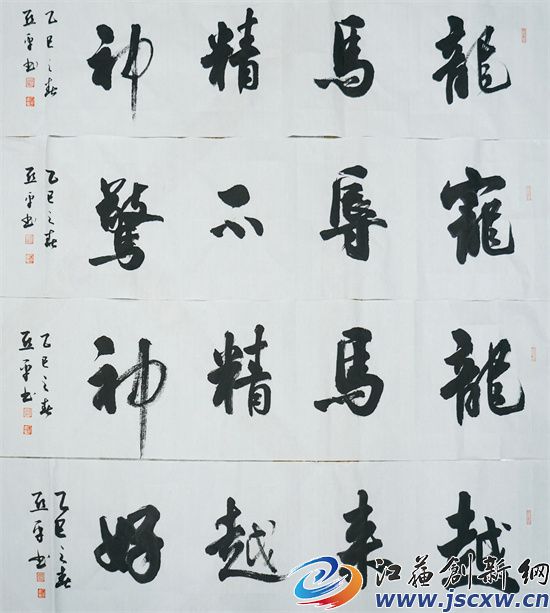 龍馬精神
乙巳之春
亚平书
寵辱不驚
乙巳之春
亚平书
龍馬精神
乙巳之春
亚平书
越来越好
乙巳之春
亚平书
江蘇創新網
www.jscxw.cn